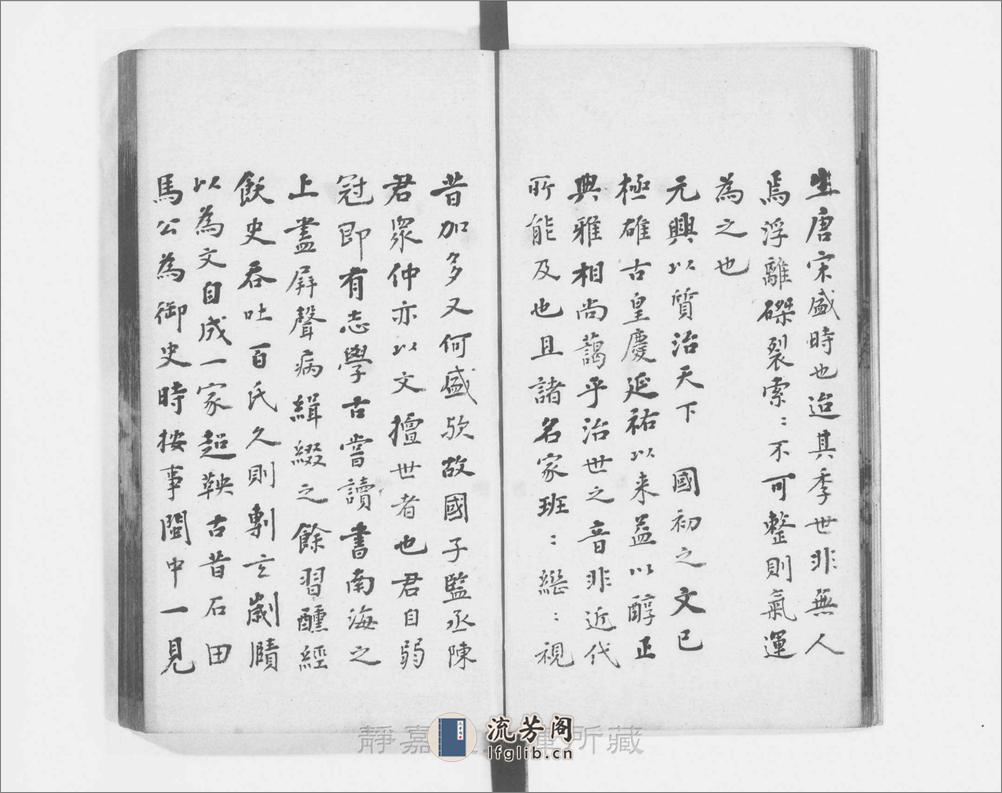 生唐宋盛時也迨其季世非無人
焉浮離磔裂索〻不可整則氣運
為之也
元興以質治天下　國初之文已
極雄古皇慶延祐以来益以醇正
典雅相尚藹乎治世之音非近代
所能及也且諸名家班〻繼〻視
昔加多又何盛欤故國子監丞陳
君衆仲亦以文擅世者也君自弱
冠即有志學古嘗讀書南海之
上盡屏聲病緝綴之餘習醺經
飫史吞吐百氏久則劃玄劌賾
以為文自成一家超軼古昔石田
馬公為御史時按事閩中一見
靜嘉 所藏
流芳阁
lfglib.cn